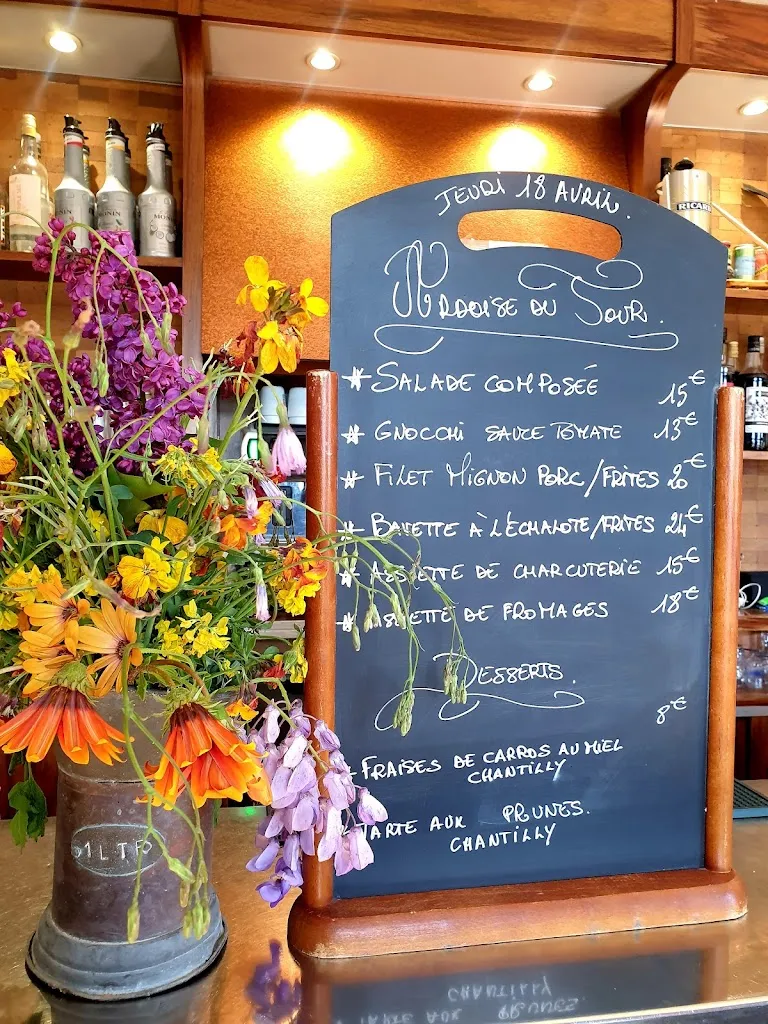 JEUDI 18 AVRIL.
ARDOISE DU JOUR.
* SALADE COMPOSÉE 15€
* GNOCCHI SAUCE TOMATE 13€
* FILET MIGNON PORC/FRITES 20€
* BAVETTE À L'ÉCHALOTE/FRITES 24€
* ASSIETTE DE CHARCUTERIE 15€
* ASSIETTE DE FROMAGES 18€
DESSERTS.
8€
FRAISES DE CARROS AU MIEL
CHANTILLY
TARTE AUX PRUNES.
CHANTILLY
MONIN
MONIN
RICARD